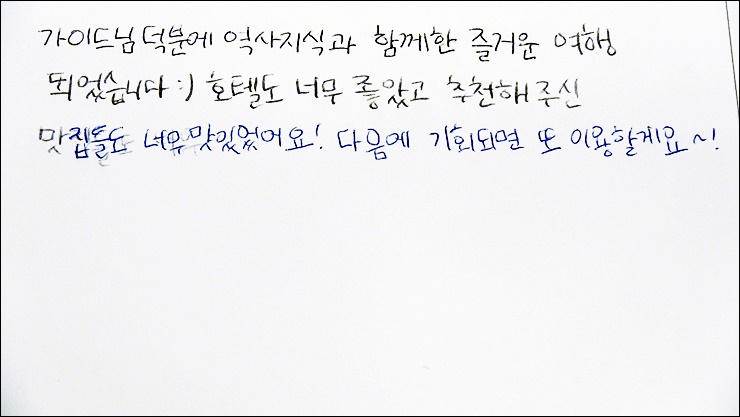 가이드님 덕분에 역사지식과 함께한 즐거운 여행
되었습니다 :) 호텔도 너무 좋았고 추천해주신
맛집들도 너무 맛있었어요! 다음에 기회되면 또 이용할게요~!